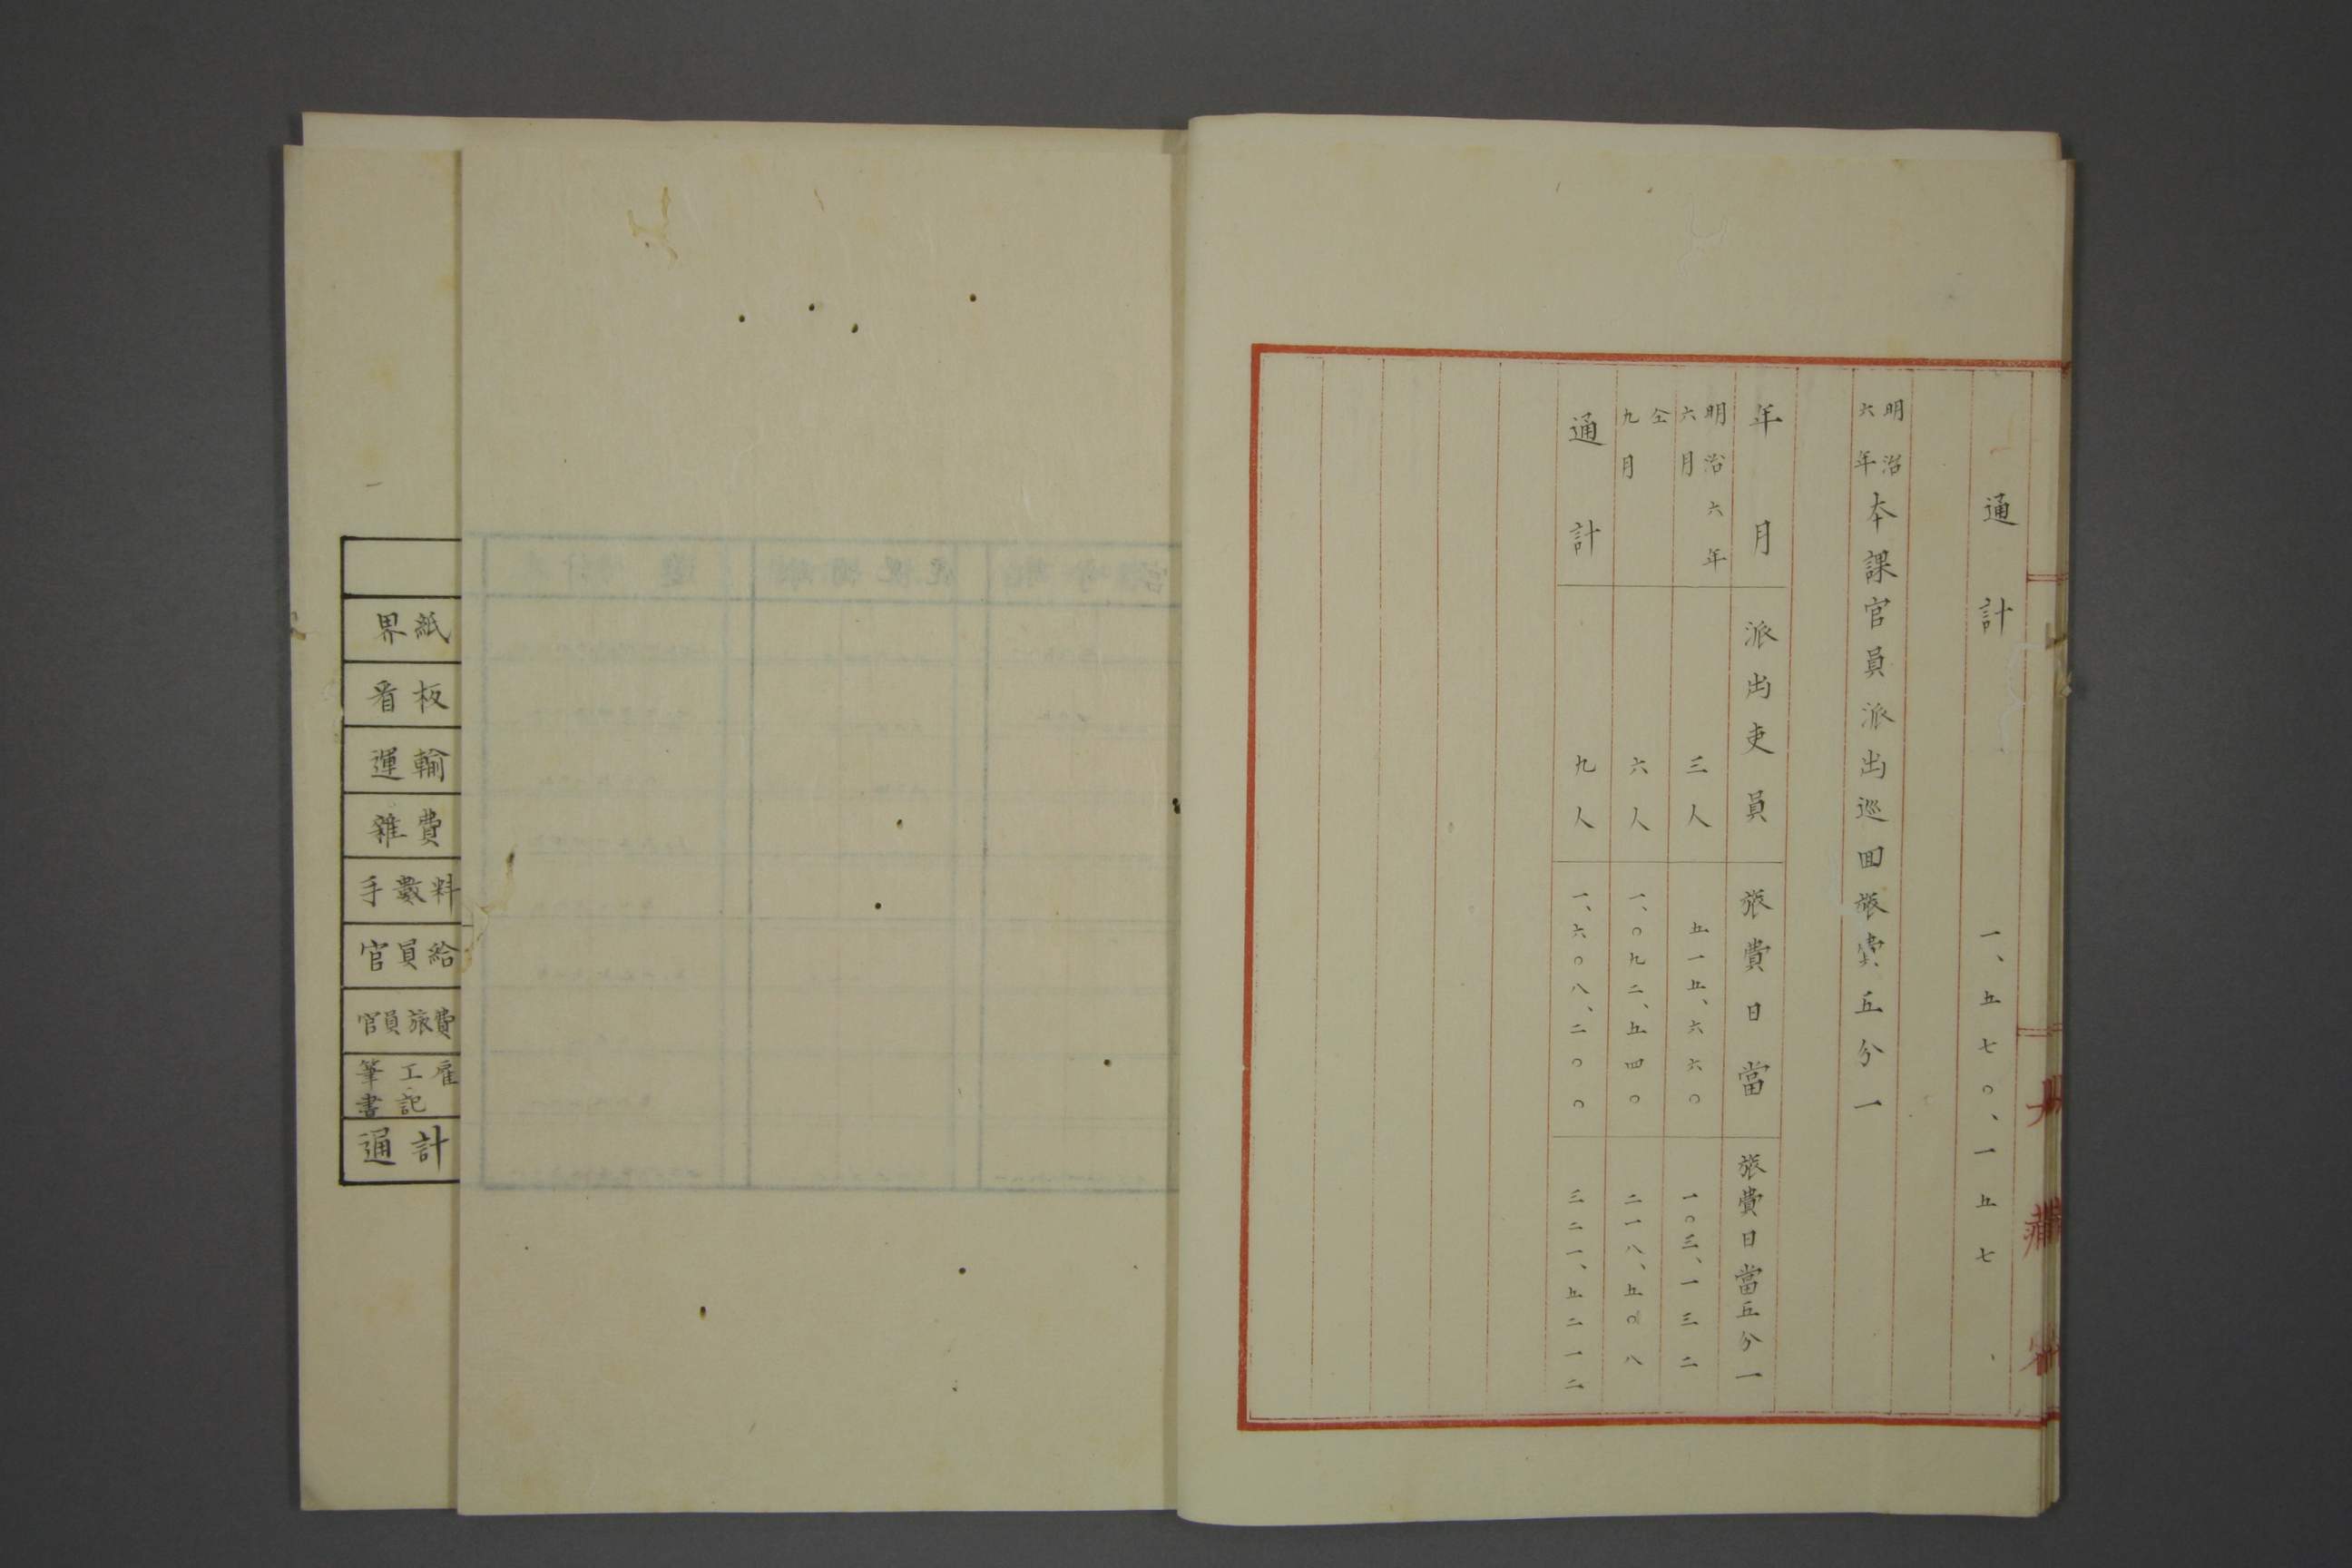 通計 一、五七〇、一五七
明治六年本課官員派出巡回旅費五分一
年月 派出吏員 旅費日當 旅費日當五分一
明治六年六月 三人 五一五、六六〇 一〇三、一三二
仝九月 六人 一、〇九二、五四〇 二一八、五〇八
通計 九人 一、六〇八、二〇〇 三二一、五二一二
界紙
看板
運輸
雜費
手數料
官員給
官員旅費
筆工雇
書記
通計